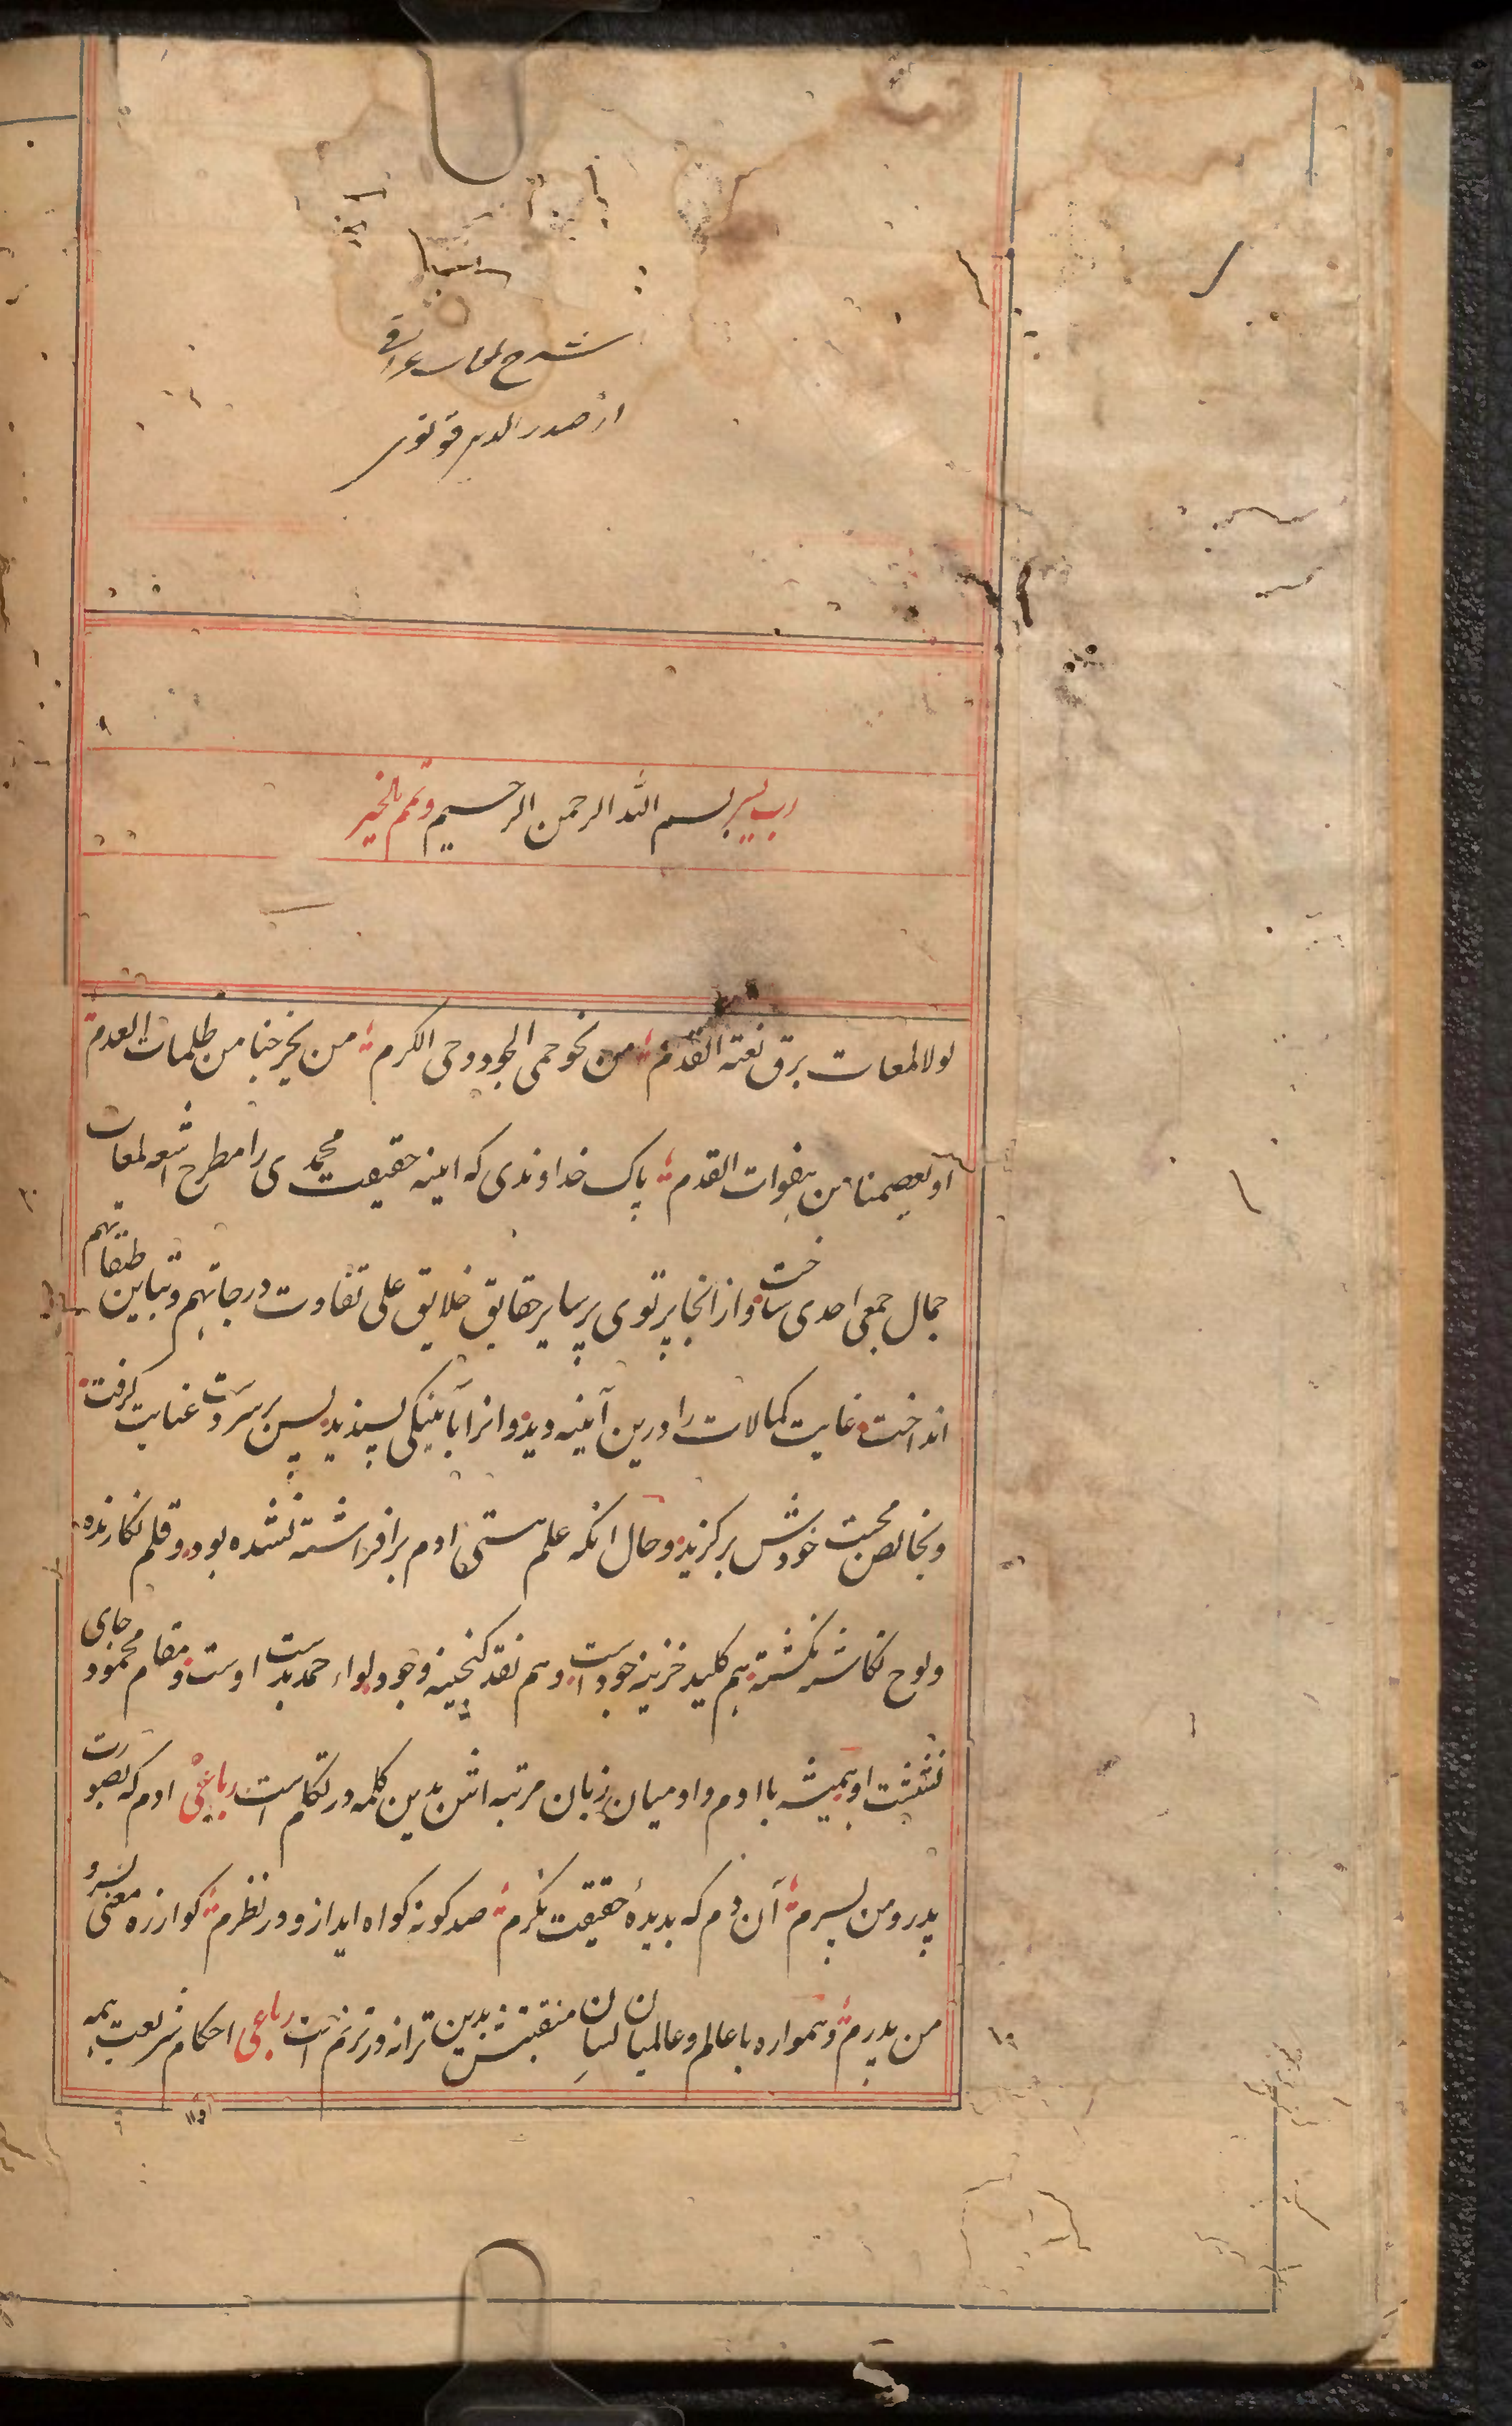 شرح لمعات عراقی
از صدر الدین قونوی
رب یسر بسم الله الرحمن الرحیم وتمم بالخیر
لولا لمعات برق نعته القدم من نحو حمی الجود وحی الکرم من یخرجنا من ظلمات العدم
او یعصمنا من هفوات القدم پاک خداوندی که اینه حقیقت محمدی را مطرح اشعه لمعات
جمال جمعی احدی ساخت واز انجا پرتوی بر سایر حقایق خلایق علی تفاوت درجاتهم وتباین طبقاتهم
انداخت غایت کمالات را درین آینه دید وانرا بآینگی پسندید پس بر سر دست عنایت گرفت
وبخالص محبت خودش برکزید وحال انکه علم هستی ادم برافراشته نشده بود وقلم نکارنده
ولوح نکاشته نکشته هم کلید خزینه جود است وهم نقد کنجینه وجود لواء حمد بدست اوست ومقام محمود جای
نشست او همیشه باادم وادمیان زبان مرتبه اش بدین کلمه در تکلم است رباعی ادم که بصورت
پدر ومن پسرم آن دم که بدیدهٔ حقیقت نکرم صد کونه کواه اید ازو در نظرم کو از ره معنی پسر و
من پدرم وهمواره با عالم وعالمیان لسان منقبتش بدین ترانه در ترنم است رباعی احکام شریعت همه